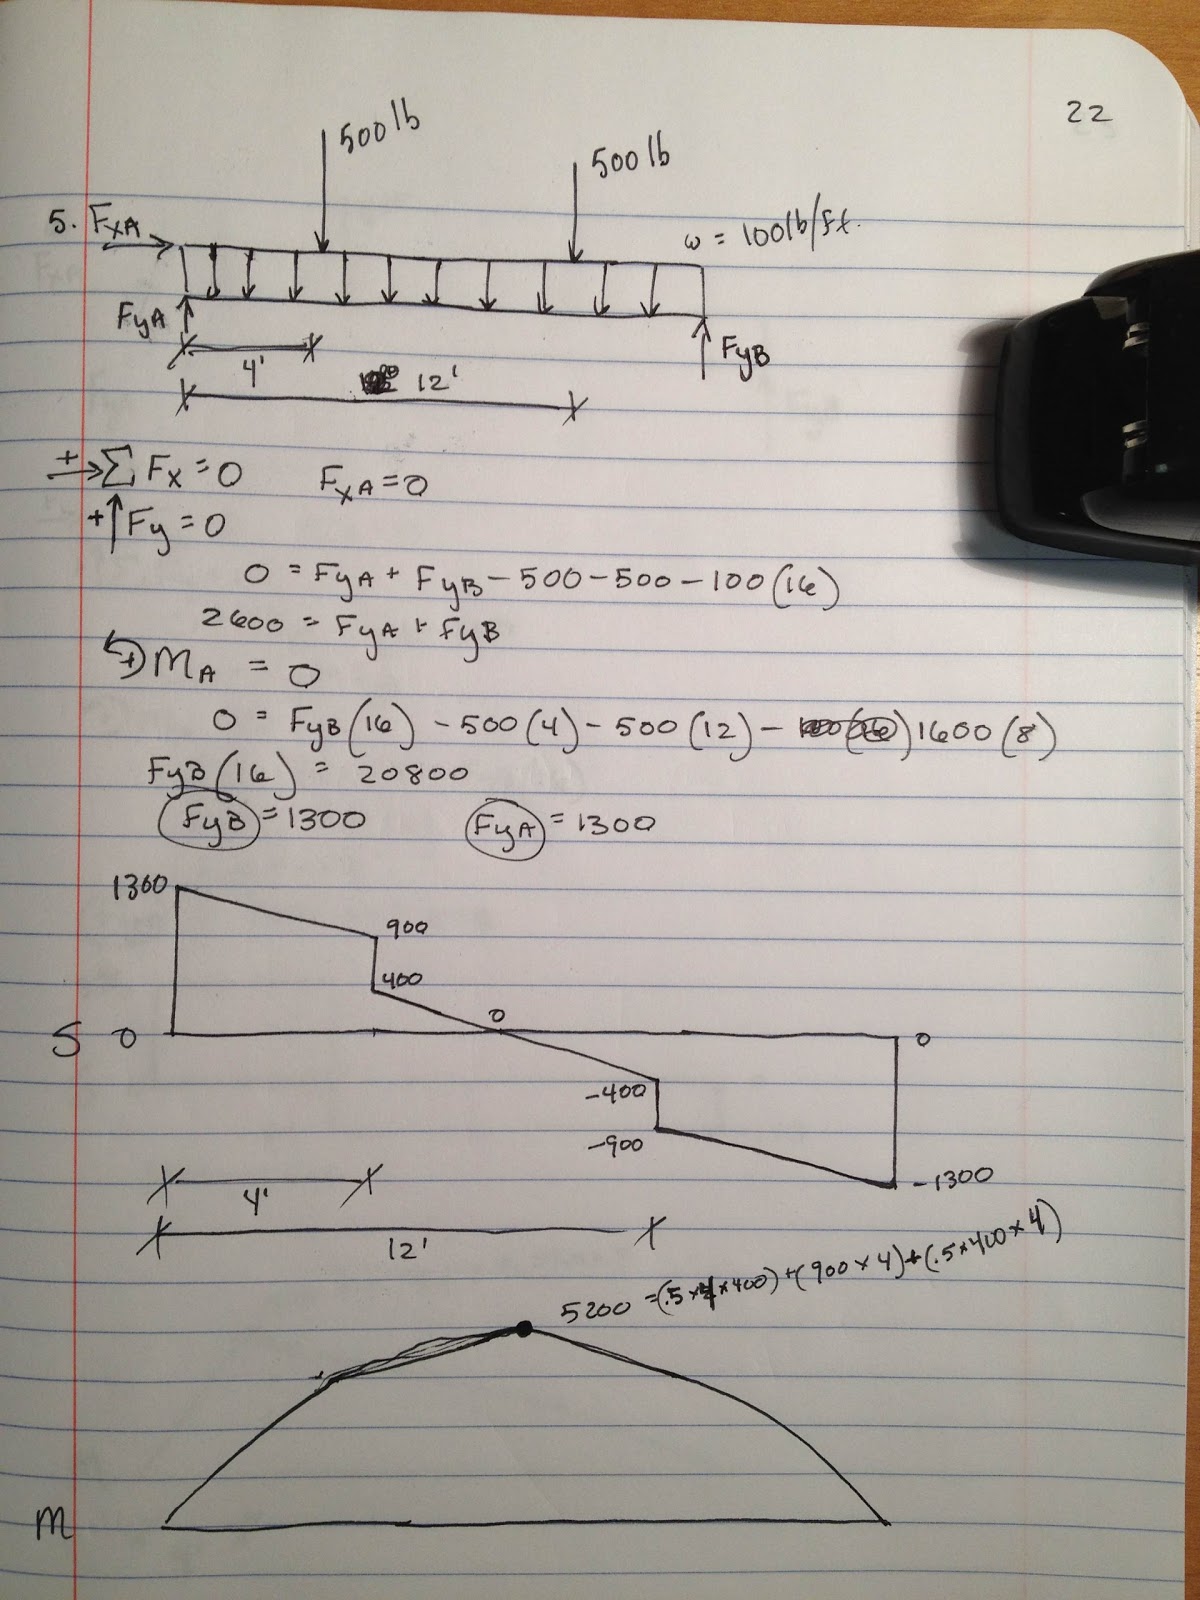 22
500 lb
500 lb
5. FxA
ω = 100 lb/ft.
FyA
FyB
4'
12'
+→ Σ Fx = 0 FxA = 0
+↑ Fy = 0
0 = FyA + FyB - 500 - 500 - 100(16)
2600 = FyA + FyB
+ MA = 0
0 = FyB(16) - 500(4) - 500(12) - 1600(8)
FyB(16) = 20800
FyB = 1300 FyA = 1300
1300
900
400
S 0 0 0
-400
-900
-1300
4'
12'
5200 = (.5 x 4 x 400) + (900 x 4) + (.5 x 400 x 4)
M